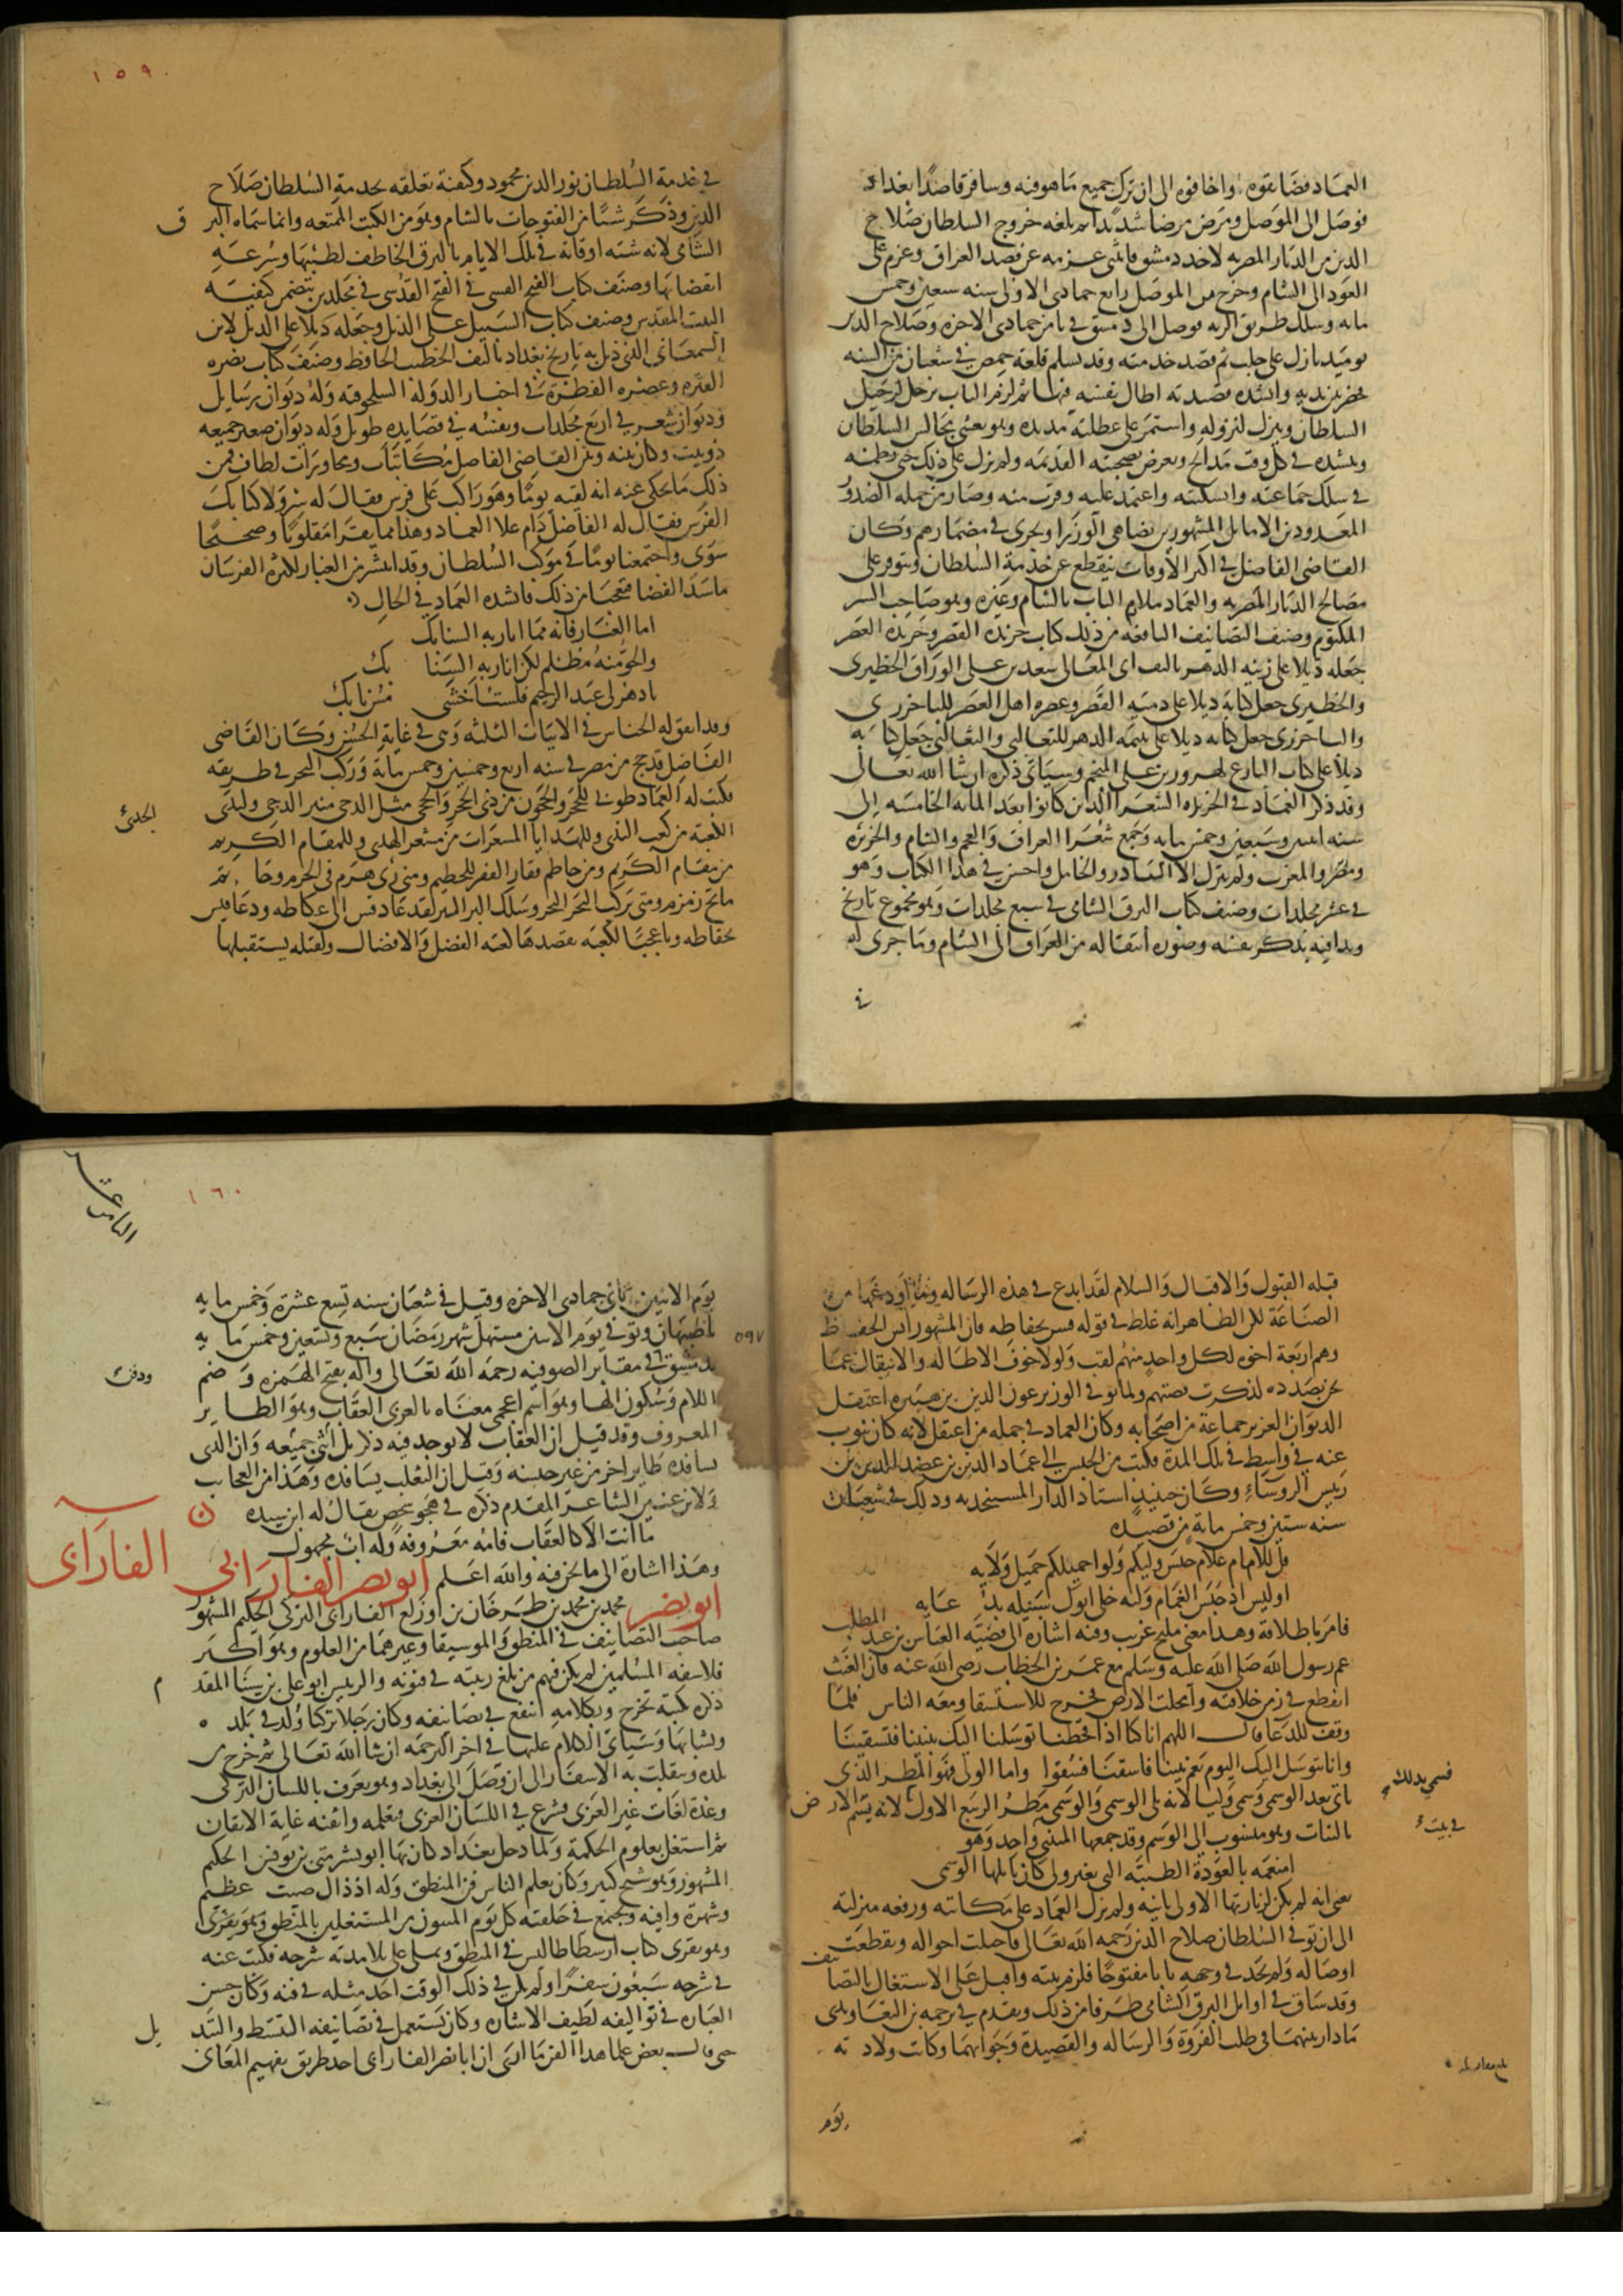 العماد فضايقوه واخافوه الى ان ترك جميع ما هو فيه وسافر قاصدا بغداد
فوصل الى الموصل ومرض مرضا شديدا ثم بلغه خروج السلطان صلاح
الدين من الديار المصريه لاخذ دمشق فانثنى عزمه عن قصد العراق وعزم على
العود الى الشام وخرج من الموصل رابع جمادى الاولى سنه سبعين وخمس
مايه وسلك طريق البريه فوصل الى دمشق في ثامن جمادى الاخره وصلاح الدين
يوميذ نازل على حلب ثم قصد خدمته وقد تسلم قلعة حمص في شعبان من السنه
فحضر بين يديه وانشده قصيدته اطال نفسه فيها ثم لزم الباب يرحل لرحيل
السلطان وينزل لنزوله واستمر على عطلته مديده وهو يغشى مجالس السلطان
وينشده في كل وقت مدائح ويعرض بصحبته القديمه ولم يزل على ذلك حتى نظمه
في سلك جماعته واستكتبه واعتمد عليه وقرب منه وصار من جمله الصدور
المعدودين الاماثل المشهورين يضاهى الوزرا ويجرى في مضمارهم وكان
القاضى الفاضل في اكثر الاوقات ينقطع عن خدمة السلطان ويتوفر على
مصالح الديار المصريه والعماد ملازم الباب بالشام وغيره وهو صاحب السر
المكتوم وصنف التصانيف النافعه من ذلك كتاب خريدة القصر وجريدة العصر
جعله ذيلا على زينه الدهر تاليف ابى المعالى سعد بن على الوراق الحظيرى
والحظيرى جعل كتابه ذيلا على دميه القصر وعصره اهل العصر للباخرزى
والباخرزى جعل كتابه ذيلا على يتيمه الدهر للثعالبى والثعالبى جعل كتابه
ذيلا على كتاب البارع لهرون بن على المنجم وسياتى ذكره ان شا الله تعالى
وقد ذكر العماد في الخريده الشعرا الذين كانوا بعد المايه الخامسه الى
سنه اثنين وسبعين وخمس مايه وجمع شعرا العراق والعجم والشام والجزيره
ومصر والمغرب ولم يترك الا النادر والخامل واحسن في هذا الكتاب وهو
في عشر مجلدات وصنف كتاب البرق الشامى في سبع مجلدات وهو مجموع تاريخ
وبدا فيه بذكر نفسه وصوره انتقاله من العراق الى الشام وما جرى له
في
١٥٩
في خدمة السلطان نور الدين محمود وكيفية تعلقه بخدمة السلطان صلاح
الدين وذكر شيئا من الفتوحات بالشام وهو من الكتب الممتعه وانما سماه البرق
الشامى لانه شبه اوقاته في تلك الايام بالبرق الخاطف لطيبها وسرعة
انقضايها وصنف كتاب الفتح القسى في الفتح القدسى في مجلدين يتضمن كيفية
البيت المقدس وصنف كتاب السيل على الذيل وجعله ذيلا على الذيل لابن
السمعانى الذى ذيل به تاريخ بغداد تاليف الخطيب الحافظ وصنف كتاب نصره
الفتره وعصره الفطره في اخبار الدولة السلجوقيه وله ديوان رسايل
وديوان شعر في اربع مجلدات ونفسه في قصايده طويل وله ديوان صغير جميعه
دوبيت وكان بينه وبين القاضى الفاضل مكاتبات ومحاورات لطاف فمن
ذلك ما يحكى عنه انه لقيه يوما وهو راكب على فرس فقال له سر فلا كبا بك
الفرس فقال له الفاضل دام علا العماد وهذا مما يقرا مقلوبا وصحيحا
سوى واجتمعا يوما في موكب السلطان وقد انتشر من الغبار لكثرة الفرسان
ما سد الفضا فتعجبا من ذلك فانشده العماد في الحال
اما الغبار فانه مما اثارته السنابك
والجو منه مظلم لكن اناربه السنا بك
يا دهر لى عبد الرحيم فلست اخشى مس نابك
وقد اتفق له الجناس في الابيات الثلثه وهى في غاية الحسن وكان القاضى
الفاضل قد حج من مصر في سنه اربع وخمسين وخمس ماية وركب البحر في طريقه
فكتب له العماد طوبى للحجر والحجون من ذى الحجر والحجى منيل الجدى منير الدجى ولندى
الجدى
الكعبة من كعب الندى وللهدايا المشعرات من مشعر الهدى وللمقام الكريم
من مقام الكريم ومن حاطم فقار الفقر للحطيم ومتى رى هرم في الحرم وحاتم
ماتح زمزم ومتى ركب البحر البحر وسلك البر البر لقد عاد قس الى عكاظه وعاد قيس
بحفاظه ويا عجبا لكعبة يقصدها كعبة الفضل والافضال ولقبله يستقبلها
قبله القبول والاقبال والسلام لقد ابدع في هذه الرساله وما اودعها من
الصناعة لكن الظاهر انه غلط في قوله قيس بحفاظه فان المشهور انس الحفاظ
وهم اربعة اخوه لكل واحد منهم لقب ولولا خوف الاطاله والانتقال عما
نحن بصدده لذكرت قصتهم ولما توفى الوزير عون الدين بن هبيره اعتقل
الديوان العزيز جماعة من اصحابه وكان العماد في جمله من اعتقل لانه كان ينوب
عنه في واسط في تلك المدة فكتب من الحبس الى عماد الدين بن عضد الدين بن
رييس الروساء وكان حينيذ استاذ الدار المستنجديه وذلك في شعبان
سنه ستين وخمس ماية من قصيده
قل للامام علام حبس وليكم ولوا جميلكم جميل ولايه
اوليس اذ حبس الغمام وليه خلى ابوك سبيله بدعايه
فامر باطلاقه وهذا معنى مليح غريب وفيه اشاره الى قضية العباس بن عبد المطلب
عم رسول الله صلى الله عليه وسلم مع عمر بن الخطاب رضى الله عنه فان الغيث
انقطع في زمن خلافته وامحلت الارض فخرج للاستسقا ومعه الناس فلما
وقف للدعا قال اللهم انا كنا اذا قحطنا توسلنا اليك بنبينا فتسقينا
وانا نتوسل اليك اليوم بعم نبينا فاسقنا فسقوا واما الولى فهو المطر الذى
فسمى بذلك
ياتى بعد الوسمى وسمى وليا لانه يلى الوسمى والوسمى مطر الربيع الاول لانه يسم الارض
بالنبات وهو منسوب الى الوسم وقد جمعها المتنبى واحد وهو
في بيت
امنعمه بالعودة الظبيه التى بغير ولى كان نايلها الوسمى
يعنى انه لم يكن لزيارتها الاولى ثانيه ولم يزل العماد على مكانته ورفعه منزلته
الى ان توفى السلطان صلاح الدين رحمه الله تعالى فاختلت احواله وتقطعت
اوصاله ولم يجد في وجهه بابا مفتوحا فلزم بيته واقبل على الاشتغال بالتصانيف
وقد ساق في اوايل البرق الشامى طرفا من ذلك وتقدم في ترجمه بن التعاويذى
ما دار بينهما في طلب الفروة والرساله والقصيدة وجوابهما وكانت ولادته
يوم
١٦٠
يوم الاثنين ثانى جمادى الاخره وقيل في شعبان سنه تسع عشرة وخمس مايه
باصبهان وتوفى يوم الاثنين مستهل شهر رمضان سبع وتسعين وخمس مايه
٥٩٧
بدمشق في مقابر الصوفيه رحمه الله تعالى واله بفتح الهمزه وضم
ودفن
اللام وسكون الها وهو اسم اعجمى معناه بالعربى العقاب وهو الطاير
المعروف وقد قيل ان العقاب لا يوجد فيه ذكر بل انثى جميعه وان الذى
يسافده طاير اخر من غير جنسه وقيل ان الثعلب يسافده وهذا من العجايب
ولابن عنين الشاعر المقدم ذكره في هجو شخص يقال له ابن سيده
ما انت الا كالعقاب فامه معروفه وله اب مجهول
وهذا اشارة الى ما نحن فيه والله اعلم ابو نصر الفارابى
الفارابى
ابو نصر محمد بن محمد بن طرخان بن اوزلغ الفارابى التركى الحكيم المشهور
صاحب التصانيف في المنطق والموسيقا وغيرهما من العلوم وهو اكبر
فلاسفه المسلمين لم يكن فيهم من بلغ رتبته في فنونه والرييس ابو على بن سينا المقدم
ذكره بكتبه تخرج وبكلامه انتفع في تصانيفه وكان رجلا تركيا ولد في بلده
ونشا بها وسياتى الكلام عليها في اخر الترجمه ان شا الله تعالى ثم خرج من
بلده وتنقلت به الاسفار الى ان وصل الى بغداد وهو يعرف باللسان التركى
وعدة لغات غير العربى فشرع في اللسان العربى فتعلمه واتقنه غاية الاتقان
ثم اشتغل بعلوم الحكمة ولما دخل بغداد كان بها ابو بشر متى بن يونس الحكيم
المشهور وهو شيخ كبير وكان يعلم الناس فن المنطق وله اذ ذاك صيت عظيم
وشهرة وافيه ويجتمع في حلقته كل يوم المئون من المشتغلين بالمنطق وهو يقرى
وهو يقرى كتاب ارسطاطاليس في المنطق ويملى على تلامذته شرحه فكتب عنه
في شرحه سبعون سفرا ولم يكن في ذلك الوقت احد مثله في فنه وكان حسن
العباره في تواليفه لطيف الاشاره وكان يستعمل في تصانيفه التبسط والتذييل
حتى قال بعض علما هذا الفن ما ارى ان ابا نصر الفارابى اخذ طريق تفهيم المعانى